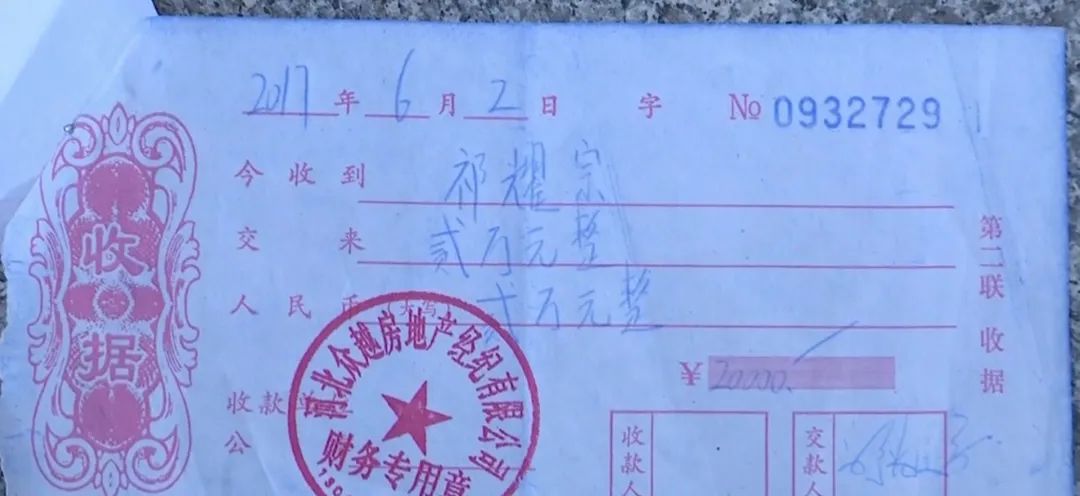 2017年6月2日 字 No 0932729
今收到 祁耀宗
交来 贰万元整
人民币 贰万元整
¥20000.
收款单
公
收款人
交款人
收据
第二联收据
河北众越房地产经纪有限公司
财务专用章